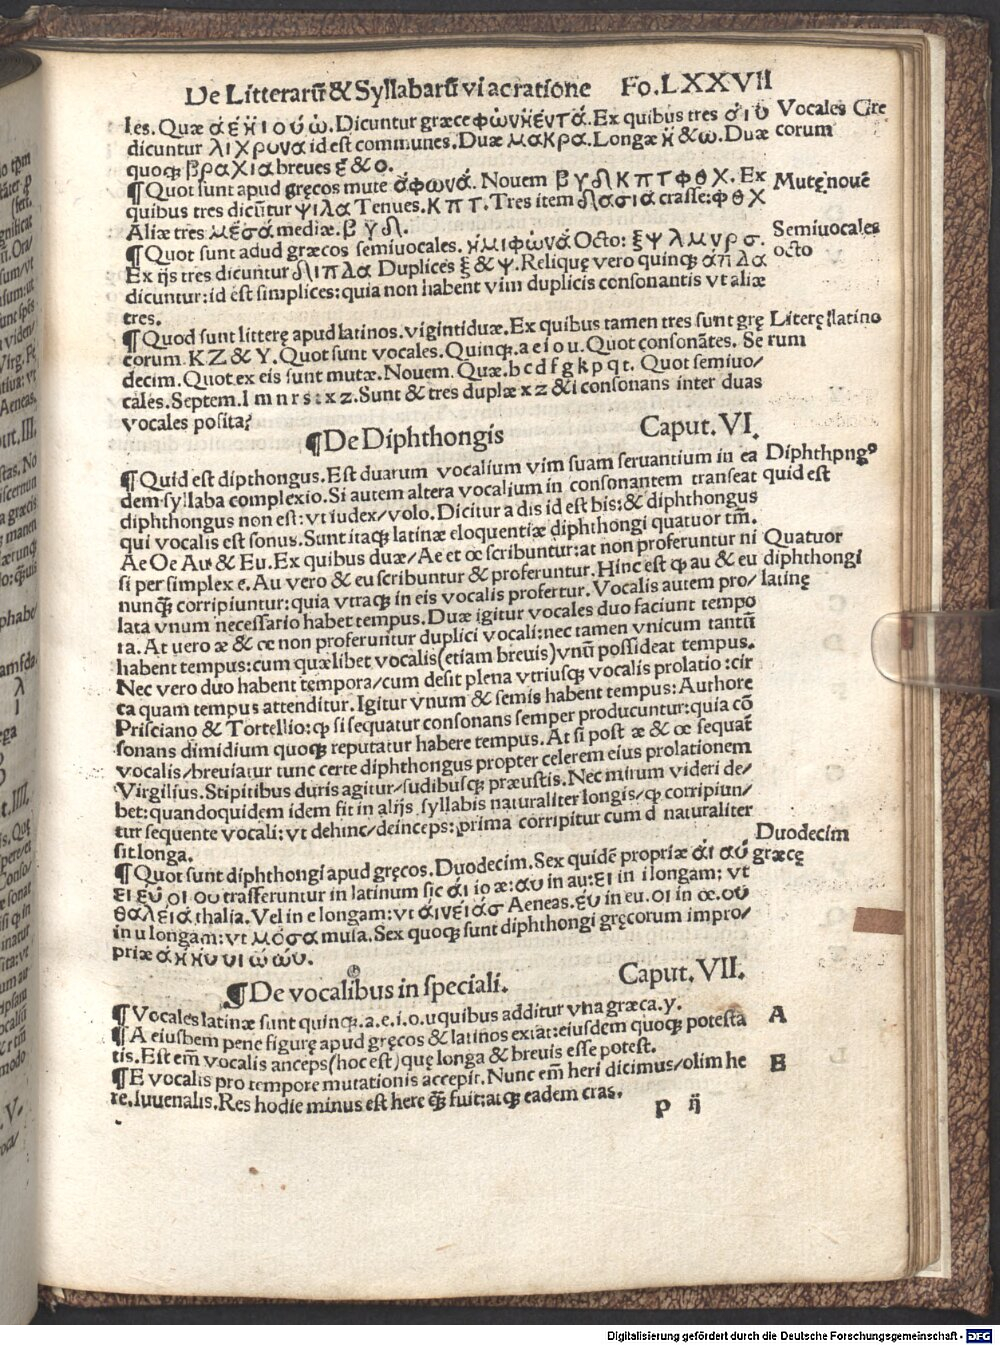 De Litterarū & Syllabarū vi ac ratione Fo. LXXVII
les. Quæ ά έ ή ι ο ύ ώ. Dicuntur græce φώνήεντά. Ex quibus tres ά ι ύ Vocales Gre
dicuntur λιχρυνα id est communes. Duæ μακρα. Longæ ή & ω. Duæ corum
quoqȝ βραχια breues έ & ο.
¶ Quot sunt apud gręcos mute άφωνά. Nouem β γ δ κ π τ φ θ χ. Ex Mutę nouē
quibus tres dicūtur ψιλα Tenues. κ π τ. Tres item δασιά crasse: φ θ χ
Aliæ tres μέσά mediæ. β γ δ.
¶ Quot sunt adud græcos semiuocales. ήμιφώνά Octo: ξ ψ λ μ ν ρ σ. Semiuocales
Ex ijs tres dicuntur διπλα Duplices ξ & ψ. Reliquę vero quinqȝ άπλα octo
dicuntur: id est simplices: quia non habent vim duplicis consonantis vt aliæ
tres.
¶ Quod sunt litterę apud latinos. viginti duæ. Ex quibus tamen tres sunt grę Literę latino
corum. K Z & Y. Quot sunt vocales. Quinqȝ. a e i o u. Quot consonātes. Se rum
decim. Quot ex eis sunt mutæ. Nouem. Quæ. b c d f g k p q t. Quot semiuo/
cales. Septem. l m n r s: x z. Sunt & tres duplæ x z & i consonans inter duas
vocales posita?
¶ De Diphthongis Caput. VI.
¶ Quid est dipthongus. Est duarum vocalium vim suam seruantium in ea Diphthpngꝰ
dem syllaba complexio. Si autem altera vocalium in consonantem transeat quid est
diphthongus non est: vt iudex/volo. Dicitur a dis id est bis: & diphthongus
qui vocalis est sonus. Sunt itaqȝ latinæ eloquentiæ diphthongi quatuor tm̄.
Ae Oe Au & Eu. Ex quibus duæ/Ae et œ scribuntur: at non proferuntur ni Quatuor
si per simplex e. Au vero & eu scribuntur & proferuntur. Hinc est ꝙ au & eu diphthongi
nunqȝ̄ corripiuntur: quia vtraqȝ in eis vocalis profertur. Vocalis autem pro/ latinę
lata vnum necessario habet tempus. Duæ igitur vocales duo faciunt tempo
ra. At uero æ & œ non proferuntur duplici vocali: nec tamen vnicum tantū
habent tempus: cum quælibet vocalis (etiam breuis) vnū possideat tempus.
Nec vero duo habent tempora/cum desit plena vtriusqȝ vocalis prolatio: cir
ca quam tempus attenditur. Igitur vnum & semis habent tempus: Authore
Prisciano & Tortellio: ꝙ si sequatur consonans semper producuntur: quia cō
sonans dimidium quoqȝ reputatur habere tempus. At si post æ & œ sequat̄
vocalis/breuiatur tunc certe diphthongus propter celerem eius prolationem
Virgilius. Stipitibus duris agitur/sudibusqȝ præustis. Nec mirum videri de/
bet: quandoquidem idem fit in alijs syllabis naturaliter longis/ꝙ corripiun/
tur sequente vocali: vt dehinc/deinceps: prima corripitur cum d naturaliter
sit longa. Duodecim
¶ Quot sunt diphthongi apud gręcos. Duodecim. Sex quidē propriæ άι αύ græcę
ει εύ οι ου trasferuntur in latinum sic άι io æ: αυ in au: ει in i longam; vt
θαλειά thalia. Vel in e longam: vt άινείάσ Aeneas. έυ in eu. οι in œ. ού
in u longam: vt μόσα musa. Sex quoqȝ sunt diphthongi gręcorum impro/
priæ ά ή ήυ υι ώ ώυ.
¶ De vocalibus in speciali. Caput. VII.
¶ Vocales latinæ sunt quinqȝ. a. e. i. o. u quibus additur vna græca. y.
¶ A eiusbem pene figurę apud gręcos & latinos extat: eiusdem quoqȝ potesta A
tis. Est em̄ vocalis anceps (hoc est) quę longa & breuis esse potest.
¶ E vocalis pro tempore mutationis accepit. Nunc em̄ heri dicimus/olim he E
re. Iuuenalis. Res hodie minus est here qȝ̄ fuit: atqȝ eadem cras.
p ij
Digitalisierung gefördert durch die Deutsche Forschungsgemeinschaft - DFG